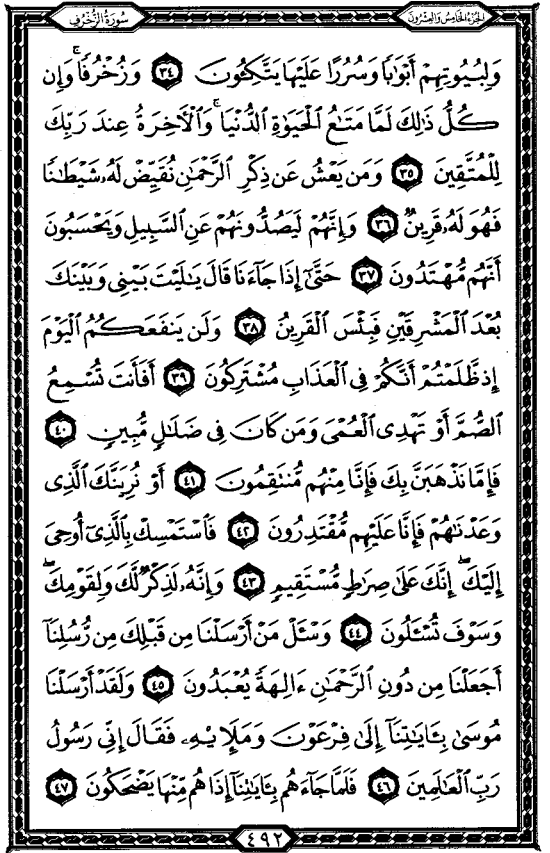 الجزء الخامس والعشرون
سورة الزخرف
وَلِبُيُوتِهِمْ أَبْوَٰبًا وَسُرُرًا عَلَيْهَا يَتَّكِـُٔونَ ٣٤ وَزُخْرُفًا ۚ وَإِن
كُلُّ ذَٰلِكَ لَمَّا مَتَـٰعُ ٱلْحَيَوٰةِ ٱلدُّنْيَا ۚ وَٱلْـَٔاخِرَةُ عِندَ رَبِّكَ
لِلْمُتَّقِينَ ٣٥ وَمَن يَعْشُ عَن ذِكْرِ ٱلرَّحْمَـٰنِ نُقَيِّضْ لَهُۥ شَيْطَـٰنًا
فَهُوَ لَهُۥ قَرِينٌ ٣٦ وَإِنَّهُمْ لَيَصُدُّونَهُمْ عَنِ ٱلسَّبِيلِ وَيَحْسَبُونَ
أَنَّهُم مُّهْتَدُونَ ٣٧ حَتَّىٰٓ إِذَا جَآءَنَا قَالَ يَـٰلَيْتَ بَيْنِى وَبَيْنَكَ
بُعْدَ ٱلْمَشْرِقَيْنِ فَبِئْسَ ٱلْقَرِينُ ٣٨ وَلَن يَنفَعَكُمُ ٱلْيَوْمَ
إِذ ظَّلَمْتُمْ أَنَّكُمْ فِى ٱلْعَذَابِ مُشْتَرِكُونَ ٣٩ أَفَأَنتَ تُسْمِعُ
ٱلصُّمَّ أَوْ تَهْدِى ٱلْعُمْىَ وَمَن كَانَ فِى ضَلَـٰلٍ مُّبِينٍ ٤٠
فَإِمَّا نَذْهَبَنَّ بِكَ فَإِنَّا مِنْهُم مُّنتَقِمُونَ ٤١ أَوْ نُرِيَنَّكَ ٱلَّذِى
وَعَدْنَـٰهُمْ فَإِنَّا عَلَيْهِم مُّقْتَدِرُونَ ٤٢ فَٱسْتَمْسِكْ بِٱلَّذِىٓ أُوحِىَ
إِلَيْكَ ۖ إِنَّكَ عَلَىٰ صِرَٰطٍ مُّسْتَقِيمٍ ٤٣ وَإِنَّهُۥ لَذِكْرٌ لَّكَ وَلِقَوْمِكَ ۖ
وَسَوْفَ تُسْـَٔلُونَ ٤٤ وَسْـَٔلْ مَنْ أَرْسَلْنَا مِن قَبْلِكَ مِن رُّسُلِنَآ
أَجَعَلْنَا مِن دُونِ ٱلرَّحْمَـٰنِ ءَالِهَةً يُعْبَدُونَ ٤٥ وَلَقَدْ أَرْسَلْنَا
مُوسَىٰ بِـَٔايَـٰتِنَآ إِلَىٰ فِرْعَوْنَ وَمَلَإِي۟هِۦ فَقَالَ إِنِّى رَسُولُ
رَبِّ ٱلْعَـٰلَمِينَ ٤٦ فَلَمَّا جَآءَهُم بِـَٔايَـٰتِنَآ إِذَا هُم مِّنْهَا يَضْحَكُونَ ٤٧
٤٩٢